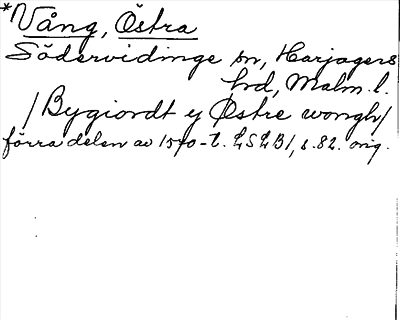 *Vång, Östra
Södervidinge sn, Harjagers
hd, Malm. l.
/Bygiordt y Østre wongh/
förra delen av 1570-t. LSLB1, s. 82. orig.